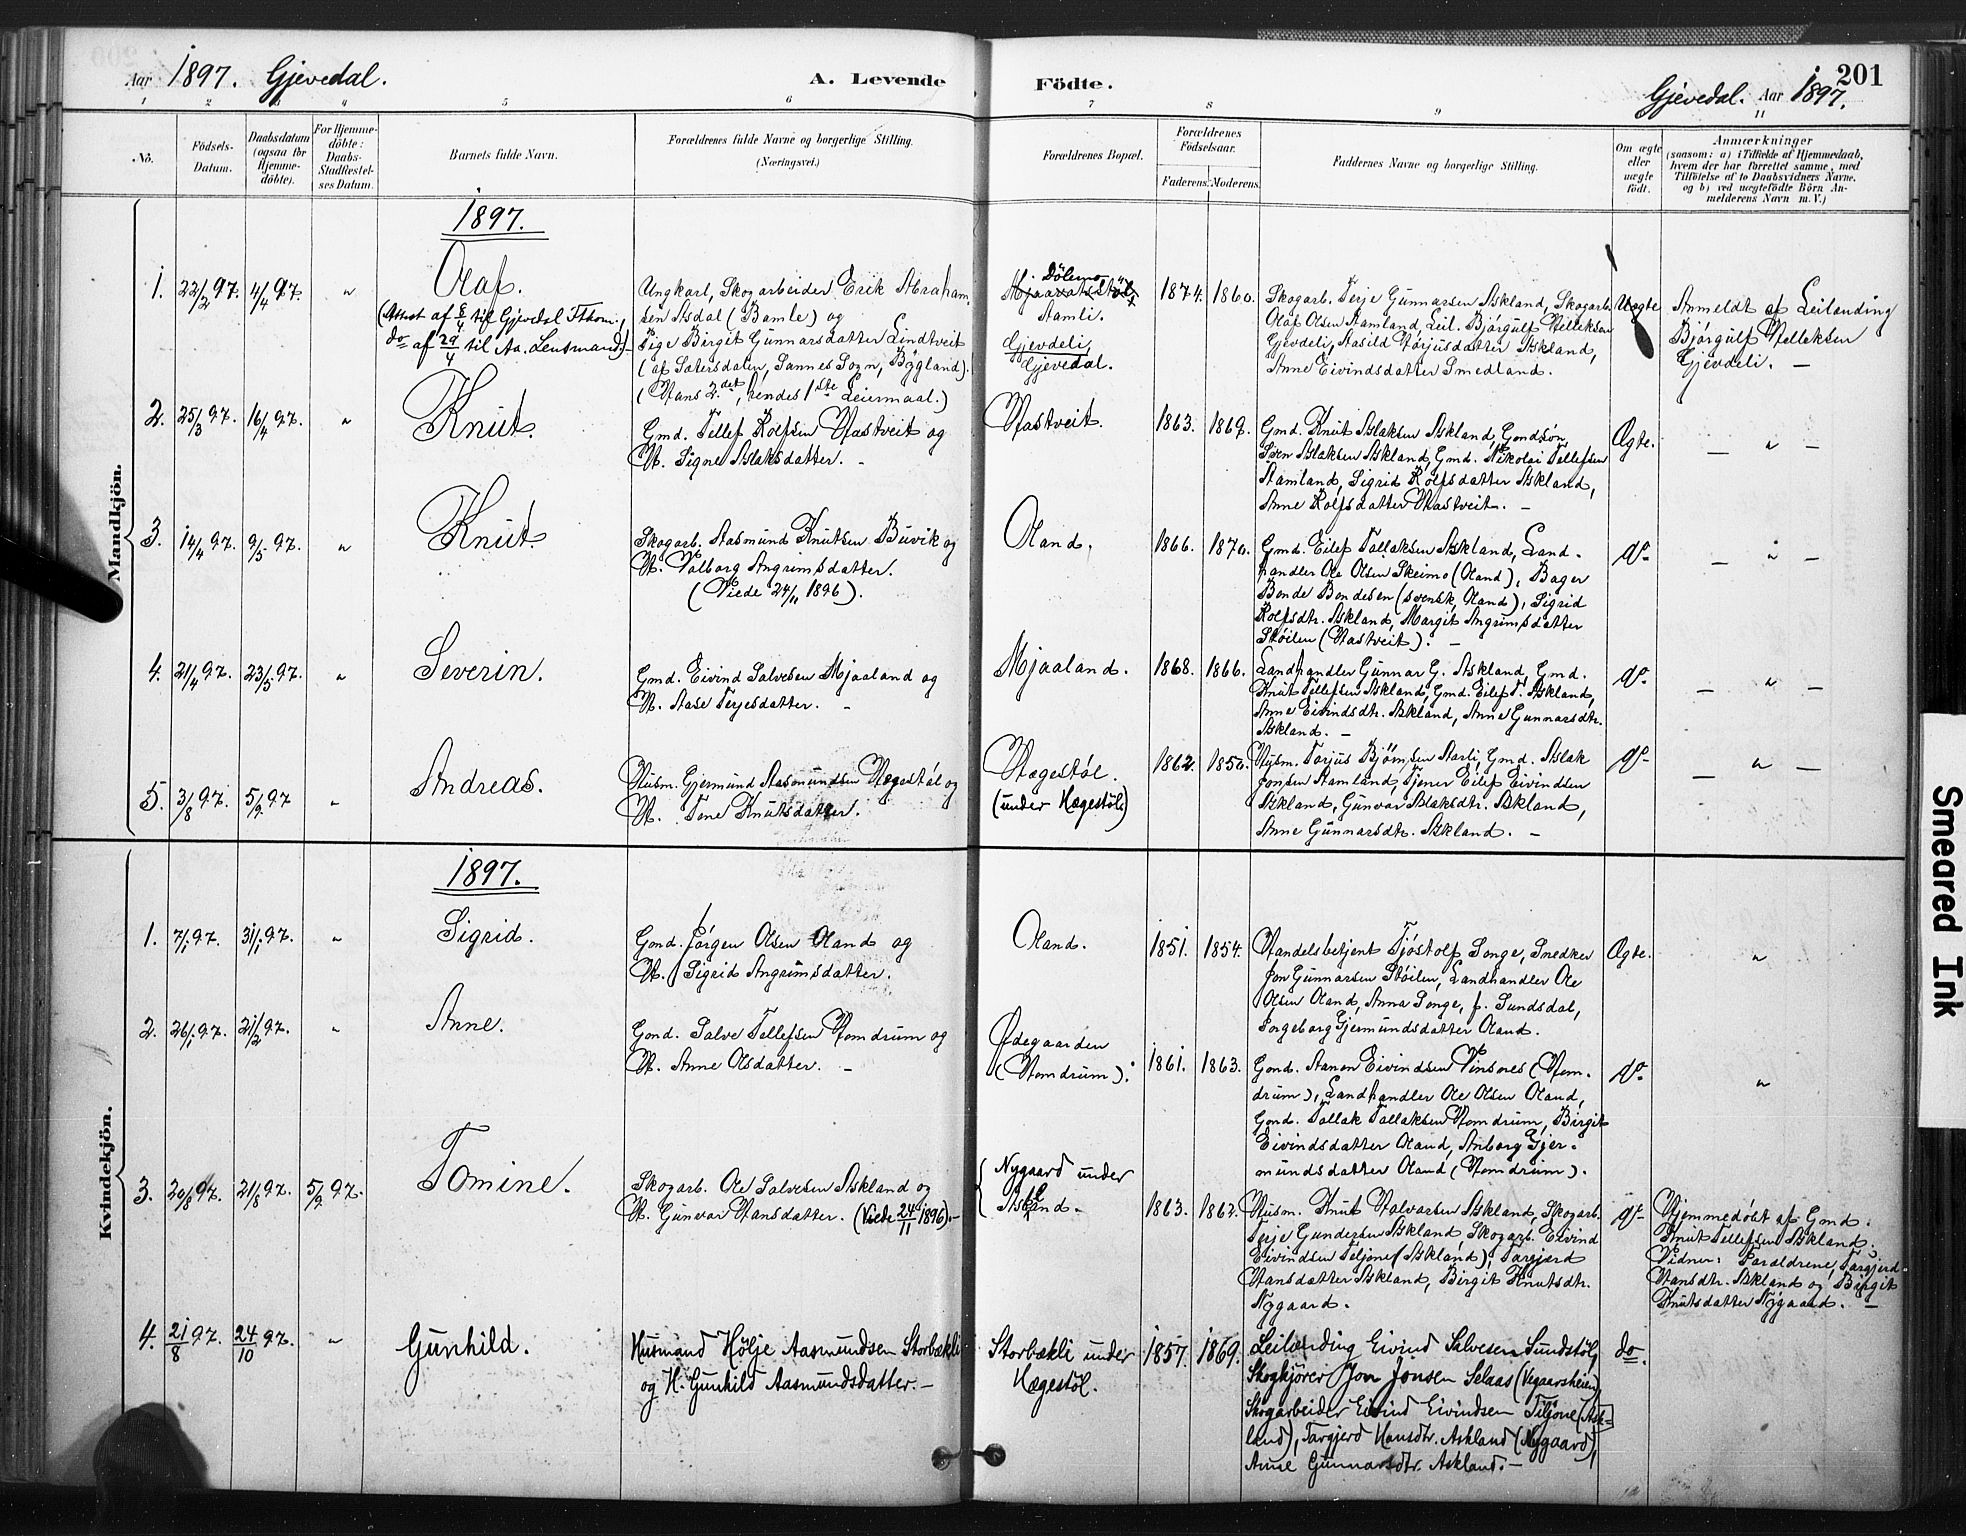 Aar 1897. Gjevedal. A. Levende Födte. Gjevedal. Aar 1897. 201
1 2 3 4 5 6 7 8 9 11
No.
Födsels-Datum.
Daabsdatum (ogsaa for Hjemme-döbte).
For Hjemme-döbte: Daabs-Stadfæstel-ses Datum.
Barnets fulde Navn.
Forældrenes fulde Navne og borgerlige Stilling.
(Næringsvei.)
Forældrenes Bopæl.
Forældrenes Födselsaar.
Faderens. Moderens.
Faddernes Navne og borgerlige Stilling.
Om ægte eller uægte födt.
Anmærkninger
(saasom: a) i Tilfælde af Hjemmedaab,
hvem der har forrettet samme, med
Tilföielse af to Daabsvidners Navne.
og b) ved uægtefödte Börn An-
melderens Navn m. V.)
Mandkjön.
1897.
1. 22/2 97. 4/4 97. "
Olaf.
(Attest af 6/4 til Gjevedal Fthom.,
do af 29/4 til Aa. Lensmand)
Ungkarl, Skogarbeider Erik Abraham-
sen Asdal (Bamle) og
Pige Birgit Gunnarsdatter Lindtveit
(af Sætersdalen, Sannes Sogn, Bygland).
(Hans 2det, hendes 1ste Leiermaal.)
Dölemo
Aamli.
Gjevdeli,
Gjevedal.
1874. 1860.
Skogarb. Terje Gunnarsen Askland, Skogarb.
Olaf Olsen Aamland, Leil. Bjórgulf Telleksen
Gjevdeli, Aasild Tarjusdatter Askland,
Anne Eivindsdatter Smedland.
Uægte
Anmeldt af Leilending
Bjórgulf Telleksen
Gjevdeli. —
2. 25/3 97. 16/4 97. "
Knut.
Gmd. Tellef Rolfsen Hastveit og
H. Signe Aslaksdatter. -
Hastveit.
1863. 1869.
Gmd. Knut Aslaksen Askland, Gmdsón
Sven Aslaksen Askland, Gmd. Nikolai Tellefsen
Aamland, Sigrid Rolfsdatter Askland,
Anne Rolfsdatter Hastveit. -
Ægte.
— " —
3. 14/4 97. 9/5 97. "
Knut.
Skogarb. Aasmund Knutsen Buvik og
H. Valborg Angrimsdatter.
(Viede 24/11 1896).
Oland.
1866. 1870.
Gmd. Eilef Tallaksen Askland, Land-
handler Ole Olsen Skeimo (Oland), Bager
Bende Bendesen (svensk, Oland), Sigrid
Rolfsdtr. Askland, Margit Angrimsdatter
Stöilen (Hastveit). -
do
— " —
4. 21/4 97. 23/5 97. "
Severin.
Gmd. Eivind Salvesen Mjaaland og
H. Aase Terjesdatter. -
Mjaaland.
1868. 1866.
Landhandler Gunnar G. Askland, Gmd.
Knut Tellefsen Askland, Gmd. Eilef T. Askland,
Anne Eivindsdtr. Askland, Anne Gunnarsdtr.
Askland. -
do
— " —
5. 3/8 97. 5/9 97 "
Andreas.
Husm. Gjermund Aasmundsen Hægestöl og
H. Tone Knutsdatter.
Hægestöl.
(under Hægestöl)
1862. 1850.
Husm. Torjus Björnsen Aarli, Gmd. Aslak
Jonsen Aamland, Tjener Eilef Eivindsen
Askland, Gunvor Aslaksdtr. Askland,
Anne Gunnarsdtr. Askland. -
do
— " —
Kvindekjön.
1897.
1. 7/1 97. 31/1 97. "
Sigrid.
Gmd. Jörgen Olsen Oland og
H. Sigrid Angrimsdatter.
Oland.
1851. 1854.
Handelsbetjent Tjóstolf Songe, Snedker
Jon Gunnarsen Stöilen, Landhandler Ole
Olsen Oland, Anna Songe, f. Sundsdal,
Torgeborg Gjermundsdatter Oland.
Ægte.
"
2. 26/1 97. 21/2 97. "
Anne.
Gmd. Salve Tellefsen Homdrum og
H. Anne Olsdatter. -
Ødegaarden
(Homdrum).
1861. 1863.
Gmd. Aanon Eivindsen Vinsnes (Hom-
drum), Landhandler Ole Olsen Oland,
Gmd. Tallak Tallaksen Homdrum, Birgit
Eivindsdatter Oland, Anborg Gjer-
mundsdatter Oland (Homdrum).
do
"
3. 20/8 97. 21/8 97. 5/9 97.
Tomine.
Skogarb. Ole Salvesen Askland og
H. Gunvor Hansdatter. (Viede 24/11 1896).-
Nygaard under
Askland. -
1863. 1862.
Husm. Knut Halvorsen Askland, Skogarb.
Terje Gundersen Askland, Skogarb. Eivind
Eivindsen Teljone (Askland), Targjerd
Hansdatter Askland, Birgit Knutsdtr.
Nygaard.
do
Hjemmedóbt af Gmd.
Knut Tellefsen Askland.
Vidner: Forældrene, Targjerd
Hansdtr. Askland og Birgit
Knutsdatter Nygaard. —
4. 21/8 97. 24/10 97. "
Gunhild.
Husmand Hölje Aasmundsen Storbækli
og H. Gunhild Aasmundsdatter. -
Storbækli under
Hægestöl.
1857. 1869.
Leilænding Eivind Salvesen Sundstöl,
Skogkjörer Jon Jonsen Selaas (Vegaarsheien)
Skogarbeider Eivind Eivindsen Teljone (Ask-
land), Targjerd Hansdtr. Askland (Nygaard),
Anne Gunnarsdtr. Askland. -
do.
Smeared Ink